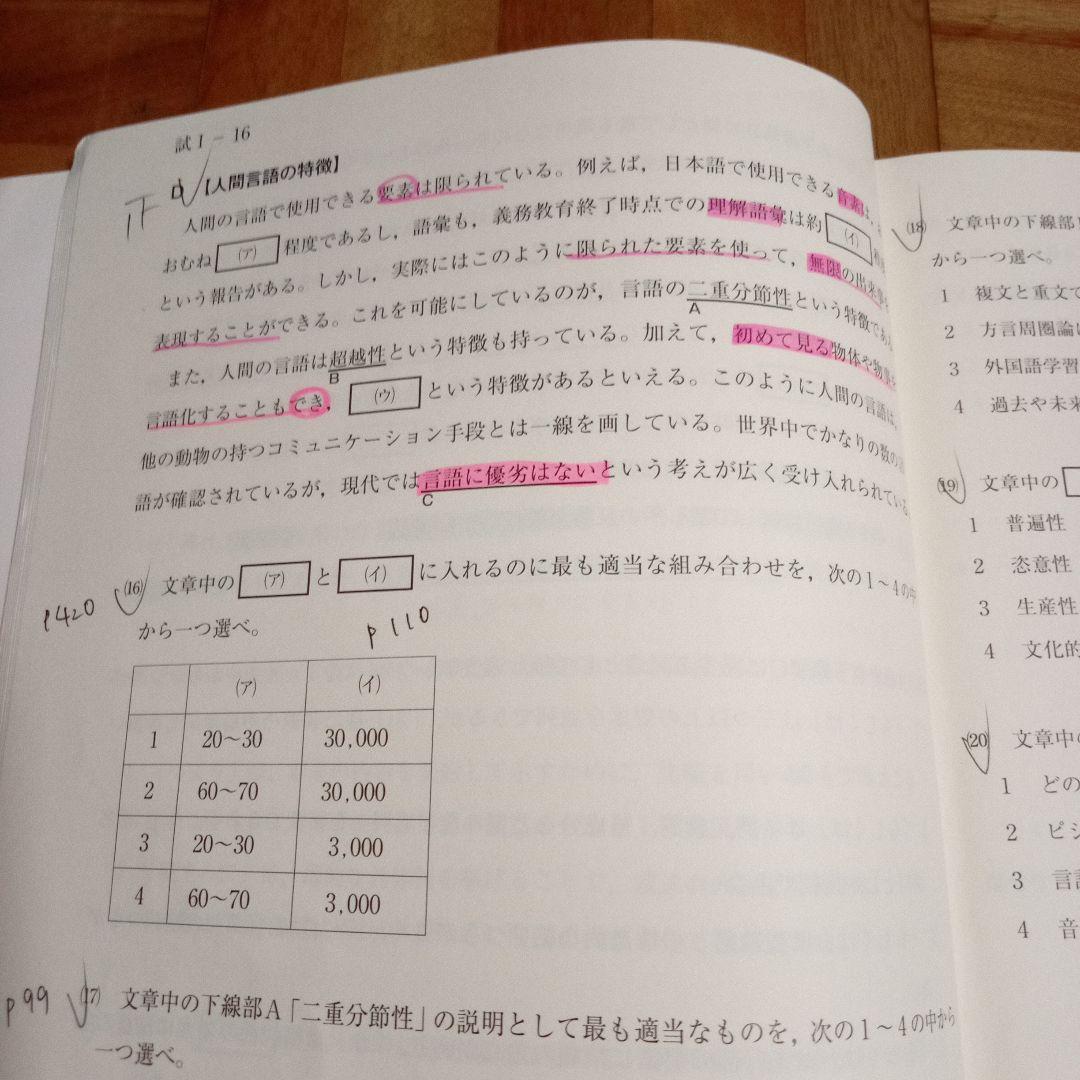 試Ⅰ－16
D 【人間言語の特徴】
人間の言語で使用できる要素は限られている。例えば，日本語で使用できる音素は，
おおむね (ア) 程度であるし，語彙も，義務教育終了時点での理解語彙は約 (イ)
という報告がある。しかし，実際にはこのように限られた要素を使って，無限の出来事を
表現することができる。これを可能にしているのが，言語の二重分節性という特徴である
A
また，人間の言語は超越性という特徴も持っている。加えて，初めて見る物体や物事を
B
言語化することもでき， (ウ) という特徴があるといえる。このように人間の言語は，
他の動物の持つコミュニケーション手段とは一線を画している。世界中でかなりの数の言
語が確認されているが，現代では言語に優劣はないという考えが広く受け入れられている。
C
p420
⒃ 文章中の (ア) と (イ) に入れるのに最も適当な組み合わせを，次の1～4の中
から一つ選べ。
p110
(ア) (イ)
1 20～30 30,000
2 60～70 30,000
3 20～30 3,000
4 60～70 3,000
p99
⒄ 文章中の下線部A「二重分節性」の説明として最も適当なものを，次の1～4の中から
一つ選べ。
⒅ 文章中の下線部
から一つ選べ。
1 複文と重文で
2 方言周圏論に
3 外国語学習
4 過去や未来
⒆ 文章中の
1 普遍性
2 恣意性
3 生産性
4 文化的
⒇ 文章中の
1 どの
2 ビジ
3 言語
4 音